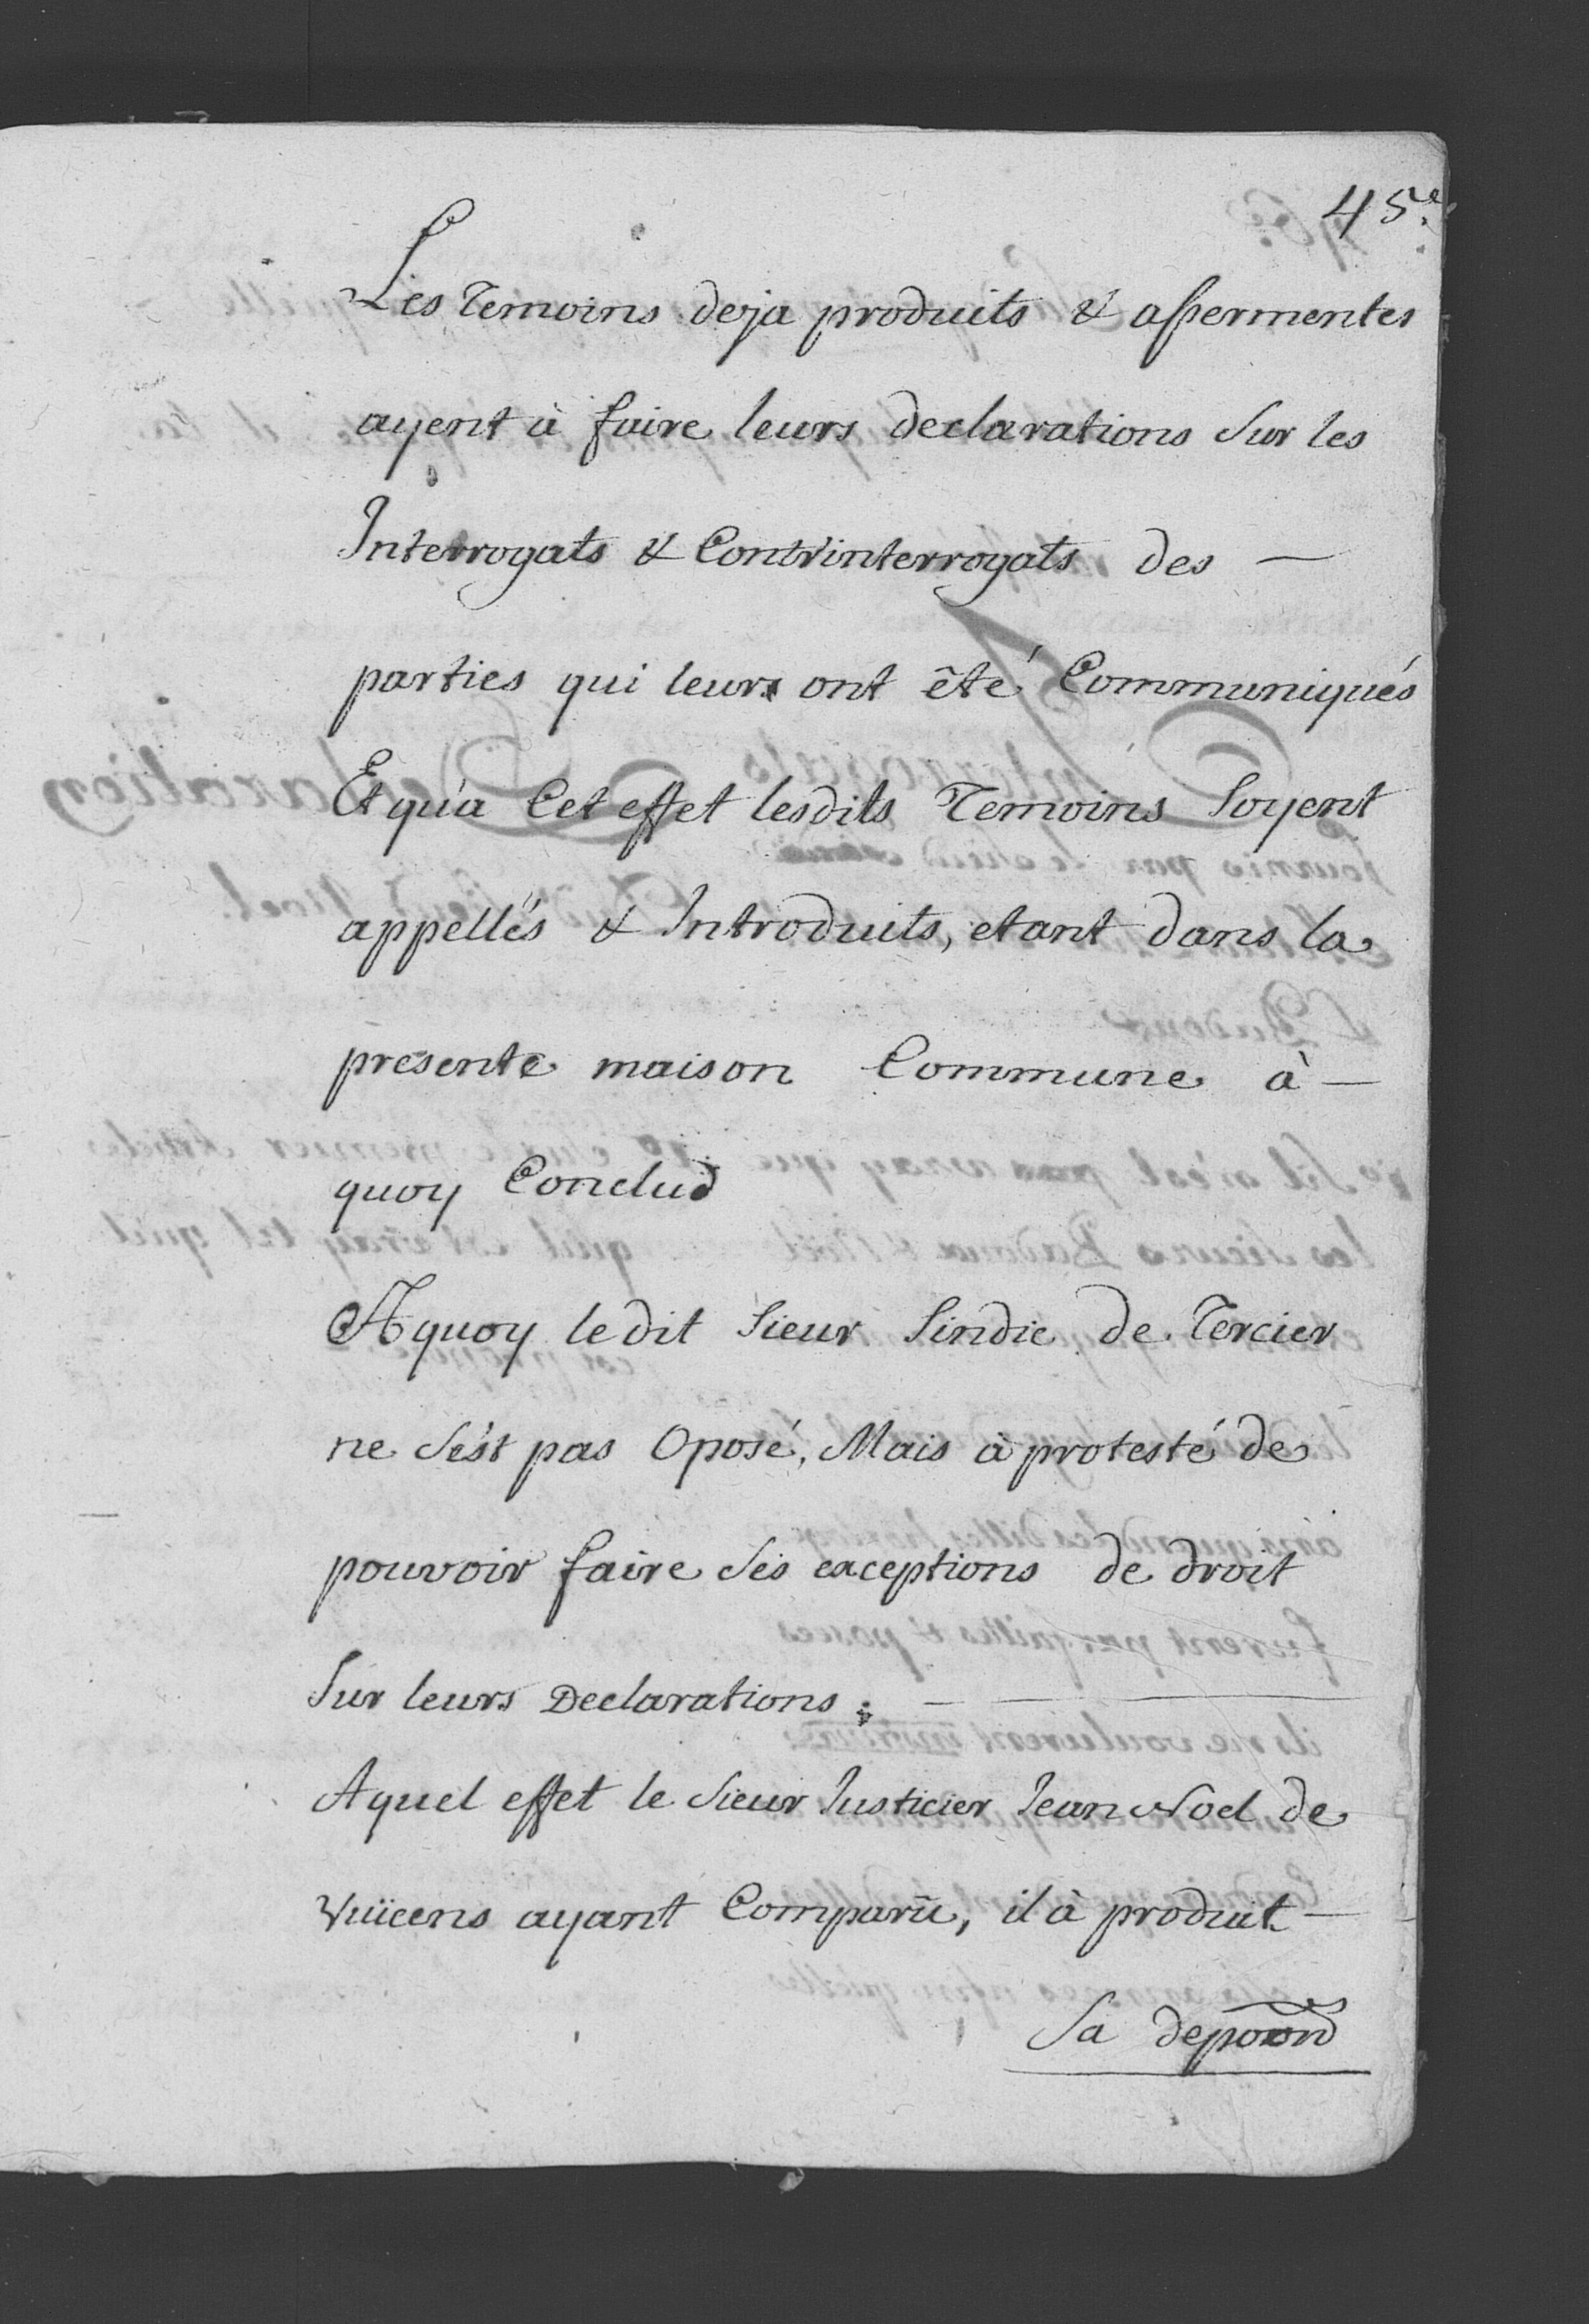 45e.
Les Temoins deja produits & assermentes
ayent à faire leurs declarations Sur les
Interrogats & Contr'interrogats des —
parties qui leurs ont êté Communiqués
Et qu'a Cet effet lesdits Temoins Soyent
appellés & Introduits, etant dans la
presente maison Commune à —
quoy Conclud
A quoy ledit Sieur Sindic de Tercier
ne s'ést pas Oposé, Mais à protesté de
pouvoir faire Ses exceptions de droit
Sur leurs Declarations; — —
A quel effet le Sieur Justicier Jean Noel de
Vuicens ayant Comparu, il à produit —
Sa depoon